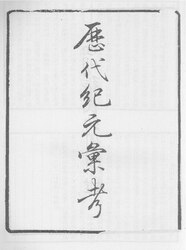 歷代紀元彙考